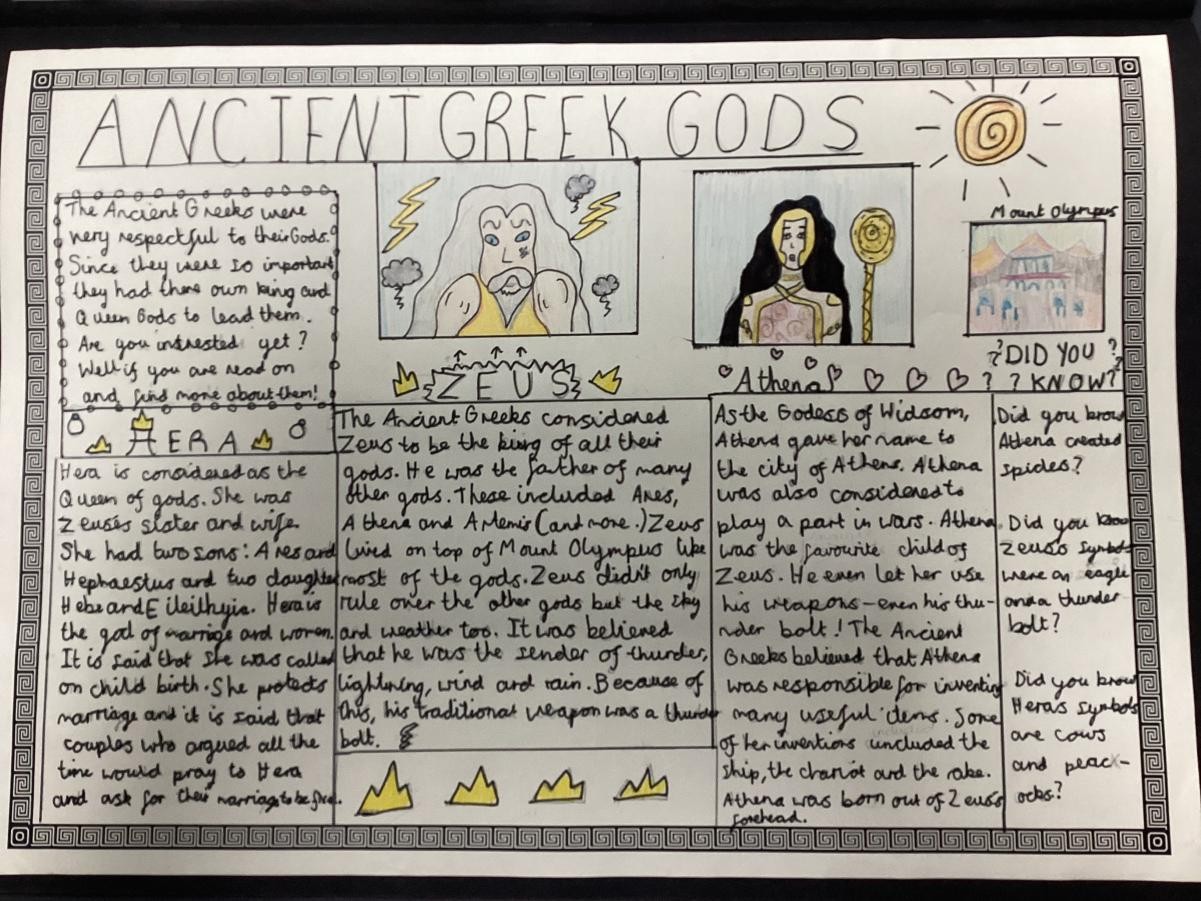 ANCIENT GREEK GODS
The Ancient Greeks were
very respectful to their Gods.
Since they were so important
they had there own king and
Queen Gods to lead them.
Are you intrested yet?
Well if you are read on
and find more about them!
HERA
Hera is considered as the
Queen of gods. She was
Zeuses sister and wife.
She had two sons: Ares and
Hephaestus and two daughter
Hebe and Eileithyia. Hera is
the god of marrige and women.
It is said that she was called
on child birth. She protects
marriage and it is said that
couples who argued all the
time would pray to Hera
and ask for their marriage to be fixed.
ZEUS
The Ancient Greeks considered
Zeus to be the king of all their
gods. He was the father of many
other gods. These included Ares,
Athena and Artemis (and more.) Zeus
lived on top of Mount Olympus like
most of the gods. Zeus didn't only
rule over the other gods but the sky
and weather too. It was believed
that he was the sender of thunder,
lightning, wind and rain. Because of
this, his traditional weapon was a thunder
bolt.
Athena
As the Godess of Widsom,
Athena gave her name to
the city of Athens. Athena
was also considered to
play a part in wars. Athena
was the favourite child of
Zeus. He even let her use
his weapons - even his thu-
nder bolt! The Ancient
Greeks believed that Athena
was responsible for inventing
many useful items. Some
of her inventions included the
ship, the chariot and the rake.
Athena was born out of Zeus's
forehead.
Mount Olympus
?DID YOU?
? ? KNOW?
Did you know
Athena created
spides?
Did you know
Zeus's symbols
were an eagle
and a thunder
bolt?
Did you know
Heras symbols
are cows
and peac-
ocks?